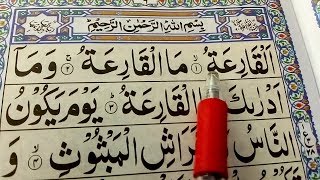 بِسْمِ اللّٰهِ الرَّحْمٰنِ الرَّحِيْمِ
اَلْقَارِعَةُ ۙ﴿۱﴾ مَا الْقَارِعَةُ ۚ﴿۲﴾ وَمَاۤ
اَدْرٰىكَ الْقَارِعَةُ ؕ﴿۳﴾ يَوْمَ يَكُوْنُ
النَّاسُ الْمَبْثُوْثِ ۙ﴿۴﴾ وَ